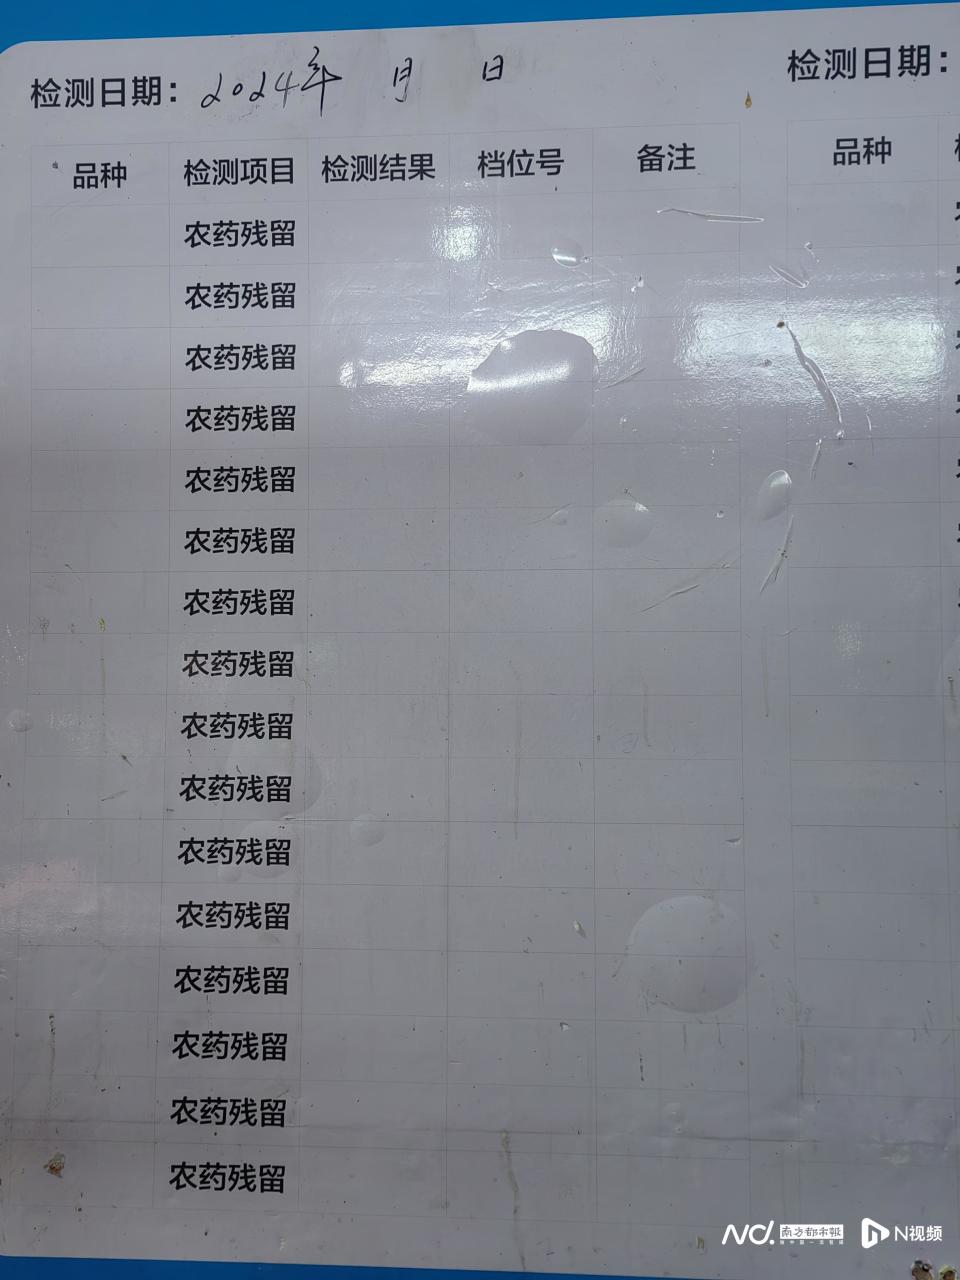 检测日期：2024年 月 日
检测日期：
品种 检测项目 检测结果 档位号 备注
品种
农药残留
农药残留
农药残留
农药残留
农药残留
农药残留
农药残留
农药残留
农药残留
农药残留
农药残留
农药残留
农药残留
农药残留
农药残留
农药残留
南方都市报 N视频